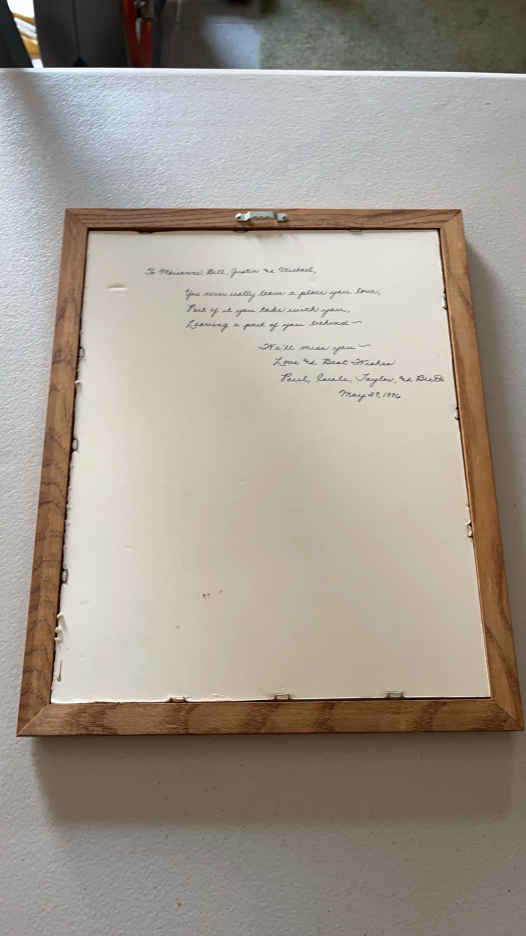 To Marianne, Bill, Justin & Michael,
You never really leave a place you love,
Part of it you take with you,
Leaving a part of you behind—
We'll miss you—
Love & Best Wishes
Paul, Taylor, &
May 29, 1996